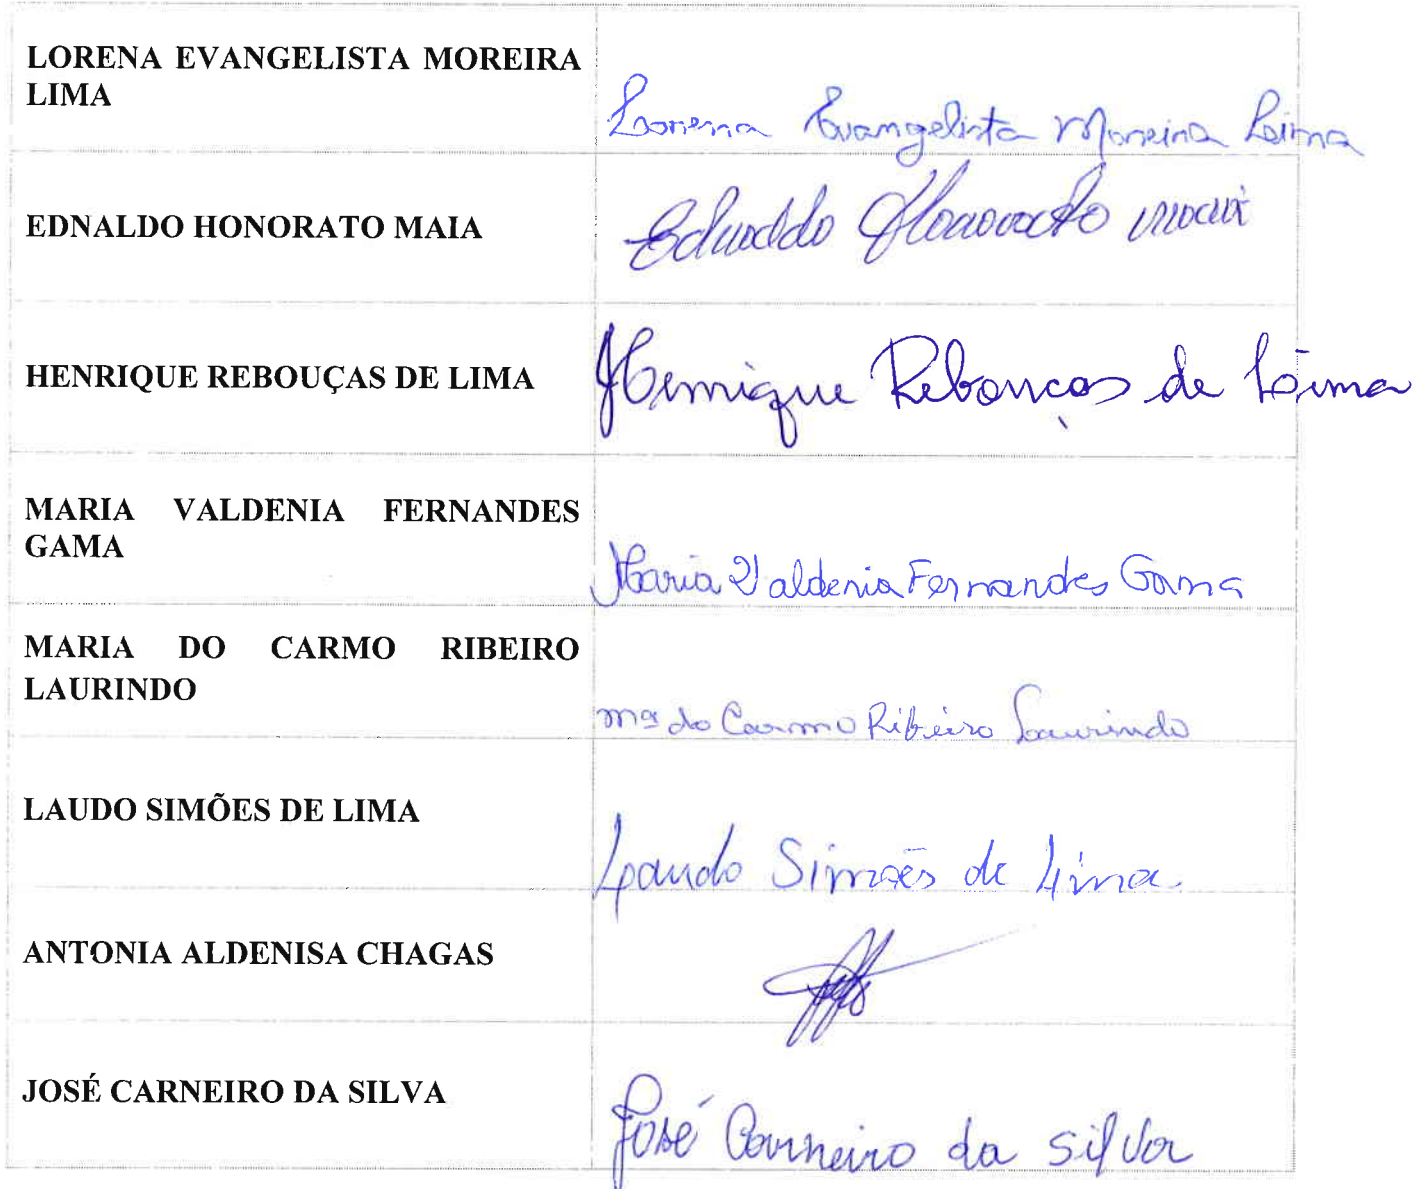 LORENA EVANGELISTA MOREIRA
LIMA
Lorena Evangelista Moreira Lima
EDNALDO HONORATO MAIA
Ednaldo Honorato Maia
HENRIQUE REBOUÇAS DE LIMA
Henrique Rebouças de Lima
MARIA VALDENIA FERNANDES
GAMA
Maria Valdenia Fernandes Gama
MARIA DO CARMO RIBEIRO
LAURINDO
Mª do Carmo Ribeiro Laurindo
LAUDO SIMÕES DE LIMA
Laudo Simões de Lima
ANTONIA ALDENISA CHAGAS
JOSÉ CARNEIRO DA SILVA
José Carneiro da Silva